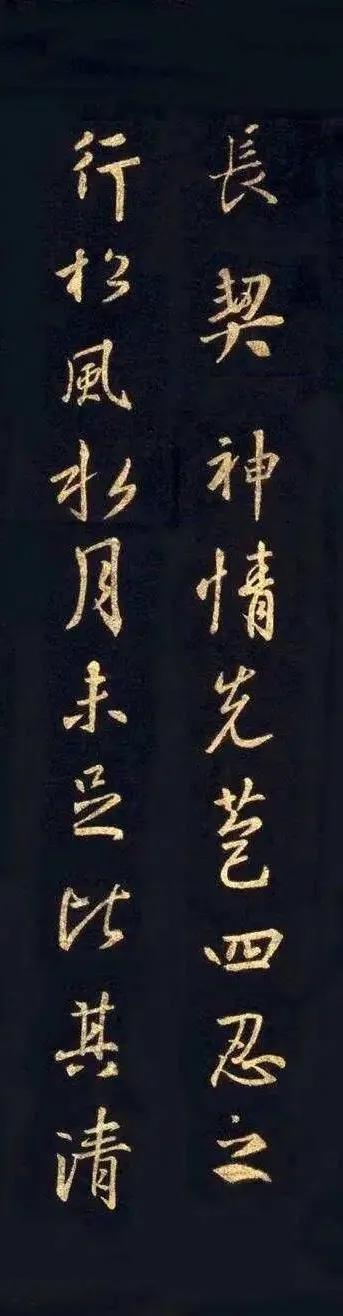 長契神情先苞四忍之
行松風水月未足比其清